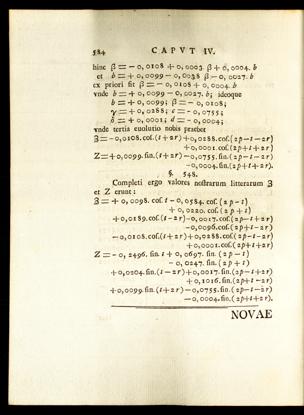 584 CAPVT IV.
hinc β = − 0,0108 + 0,0003. β + 0,0004. b
et b = + 0,0099 − 0,0038 β − 0,0027. b
ex priori fit β = − 0,0108 + 0,0004. b
vnde b = + 0,0099 − 0,0027. b; ideoque
b = + 0,0099; β = − 0,0108;
γ = + 0,0288; c = − 0,0755;
δ = + 0,0001; d = − 0,0004;
vnde tertia euolutio nobis praebet
𝔷 = − 0,0108. coſ. (t + 2r) + 0,0288. coſ. (2p − t − 2r)
+ 0,0001. coſ. (2p + t + 2r)
Z = + 0,0099. ſin. (t + 2r) − 0,0755. ſin. (2p − t − 2r)
− 0,0004. ſin. (2p + t + 2r).
§. 548.
Completi ergo valores noſtrarum litterarum 𝔷
et Z erunt:
𝔷 = + 0,0098. coſ. t − 0,0584. coſ. (2p − t)
+ 0,0220. coſ. (2p + t)
+ 0,0189. coſ. (t − 2r) − 0,0017. coſ. (2p − t + 2r)
− 0,0096. coſ. (2p + t − 2r)
− 0,0108. coſ. (t + 2r) + 0,0288. coſ. (2p − t − 2r)
+ 0,0001. coſ. (2p + t + 2r)
Z = − 0,2496. ſin. t + 0,0697. ſin. (2p − t)
− 0,0247. ſin. (2p + t)
+ 0,0204. ſin. (t − 2r) + 0,0017. ſin. (2p − t + 2r)
+ 0,1016. ſin. (2p + t − 2r)
+ 0,0099. ſin. (t + 2r) − 0,0755. ſin. (2p − t − 2r)
− 0,0004. ſin. (2p + t + 2r).
NOVAE